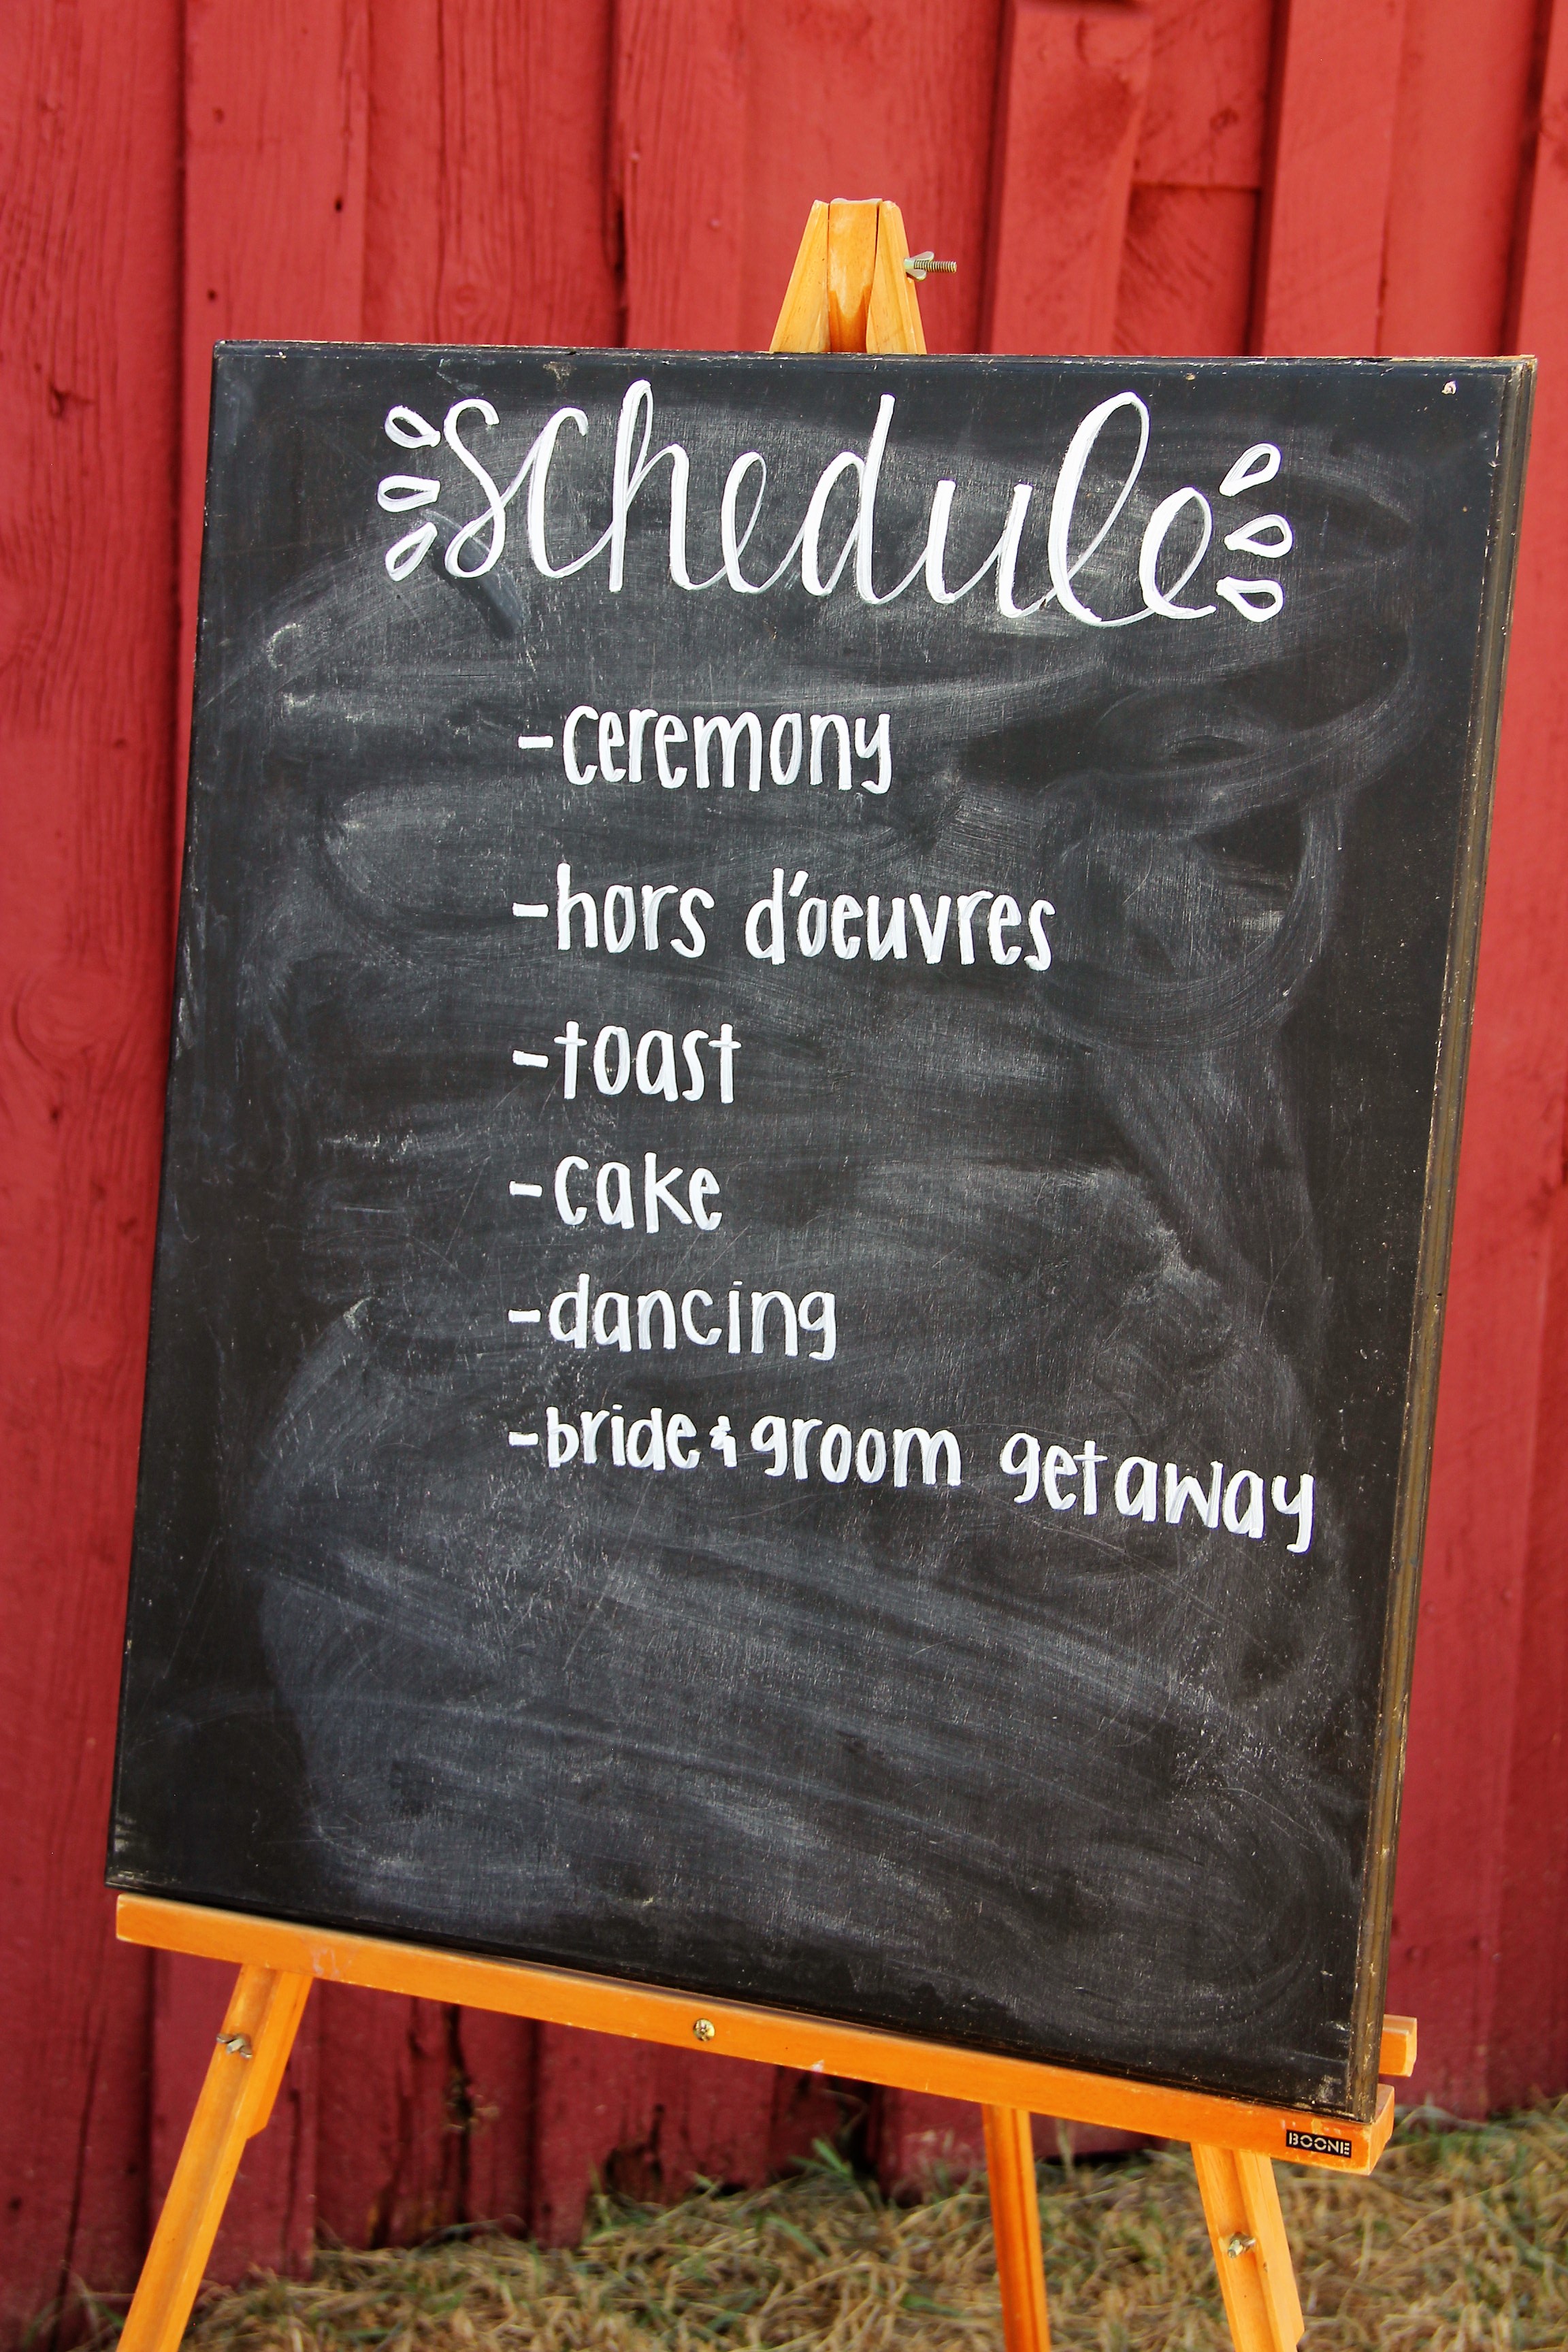 schedule
-ceremony
-hors d'oeuvres
-toast
-cake
-dancing
-bride & groom getaway
BOONE